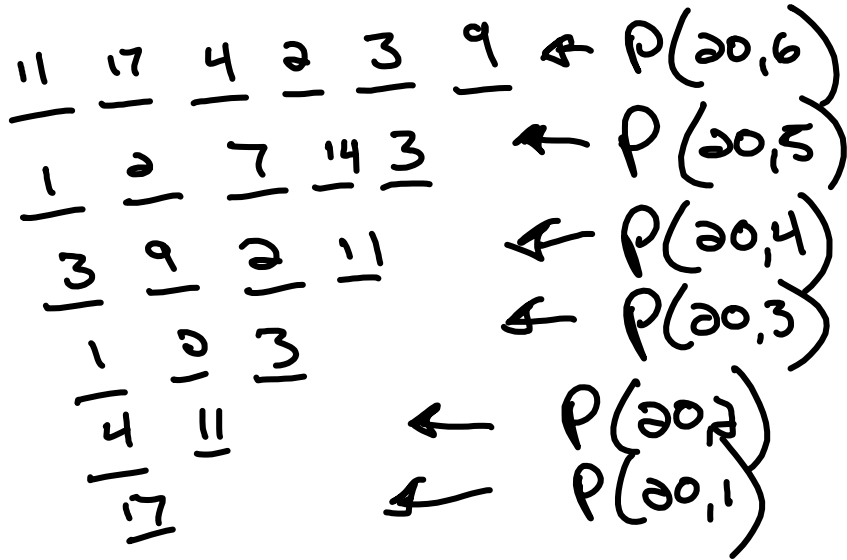 11 17 4 2 3 9 ← P(20,6)
1 2 7 14 3 ← P(20,5)
3 9 2 11 ← P(20,4)
1 2 3 ← P(20,3)
4 11 ← P(20,2)
17 ← P(20,1)